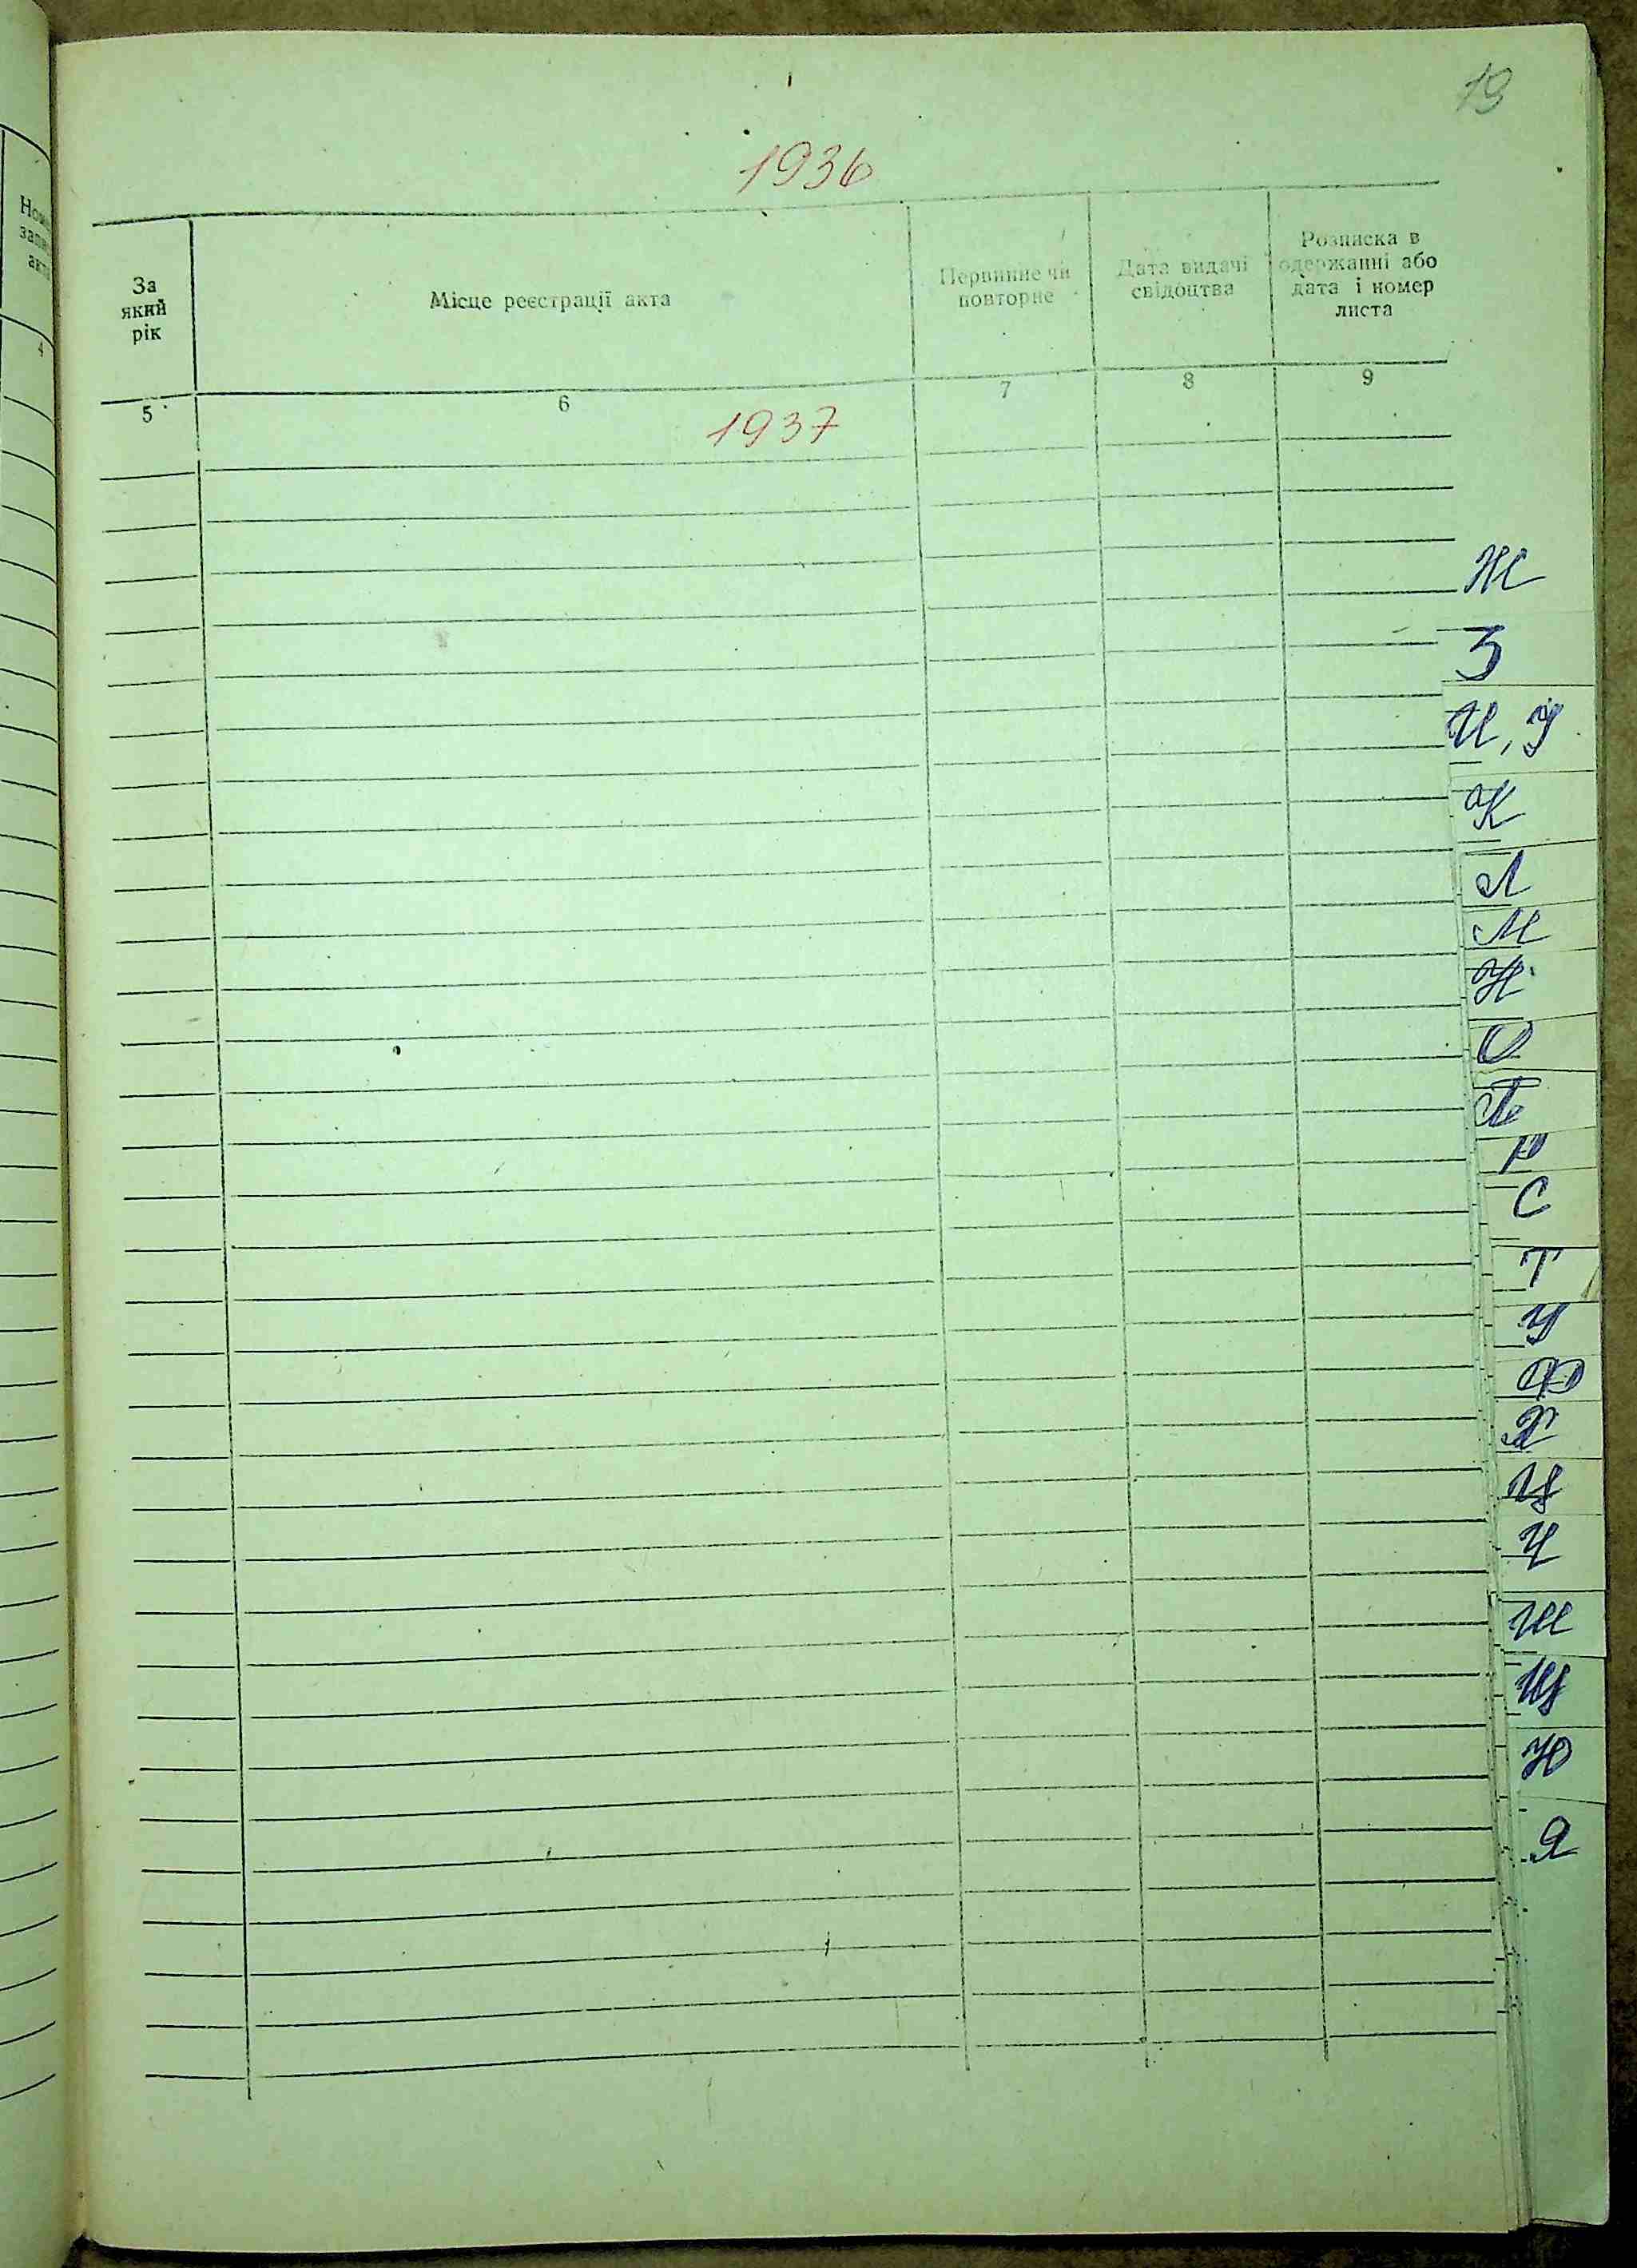 19
1936
Номе
запи
акт
4
За
який
рік
Місце реєстрації акта
Первинне чи
повторне
Дата видачі
свідоцтва
Розписка в
одержанні або
дата і номер
листа
5
6
7
8
9
1937
Ж
З
И, Й
К
Л
М
Н
О
П
Р
С
Т
У
Ф
Х
Ц
Ч
Ш
Щ
Ю
Я